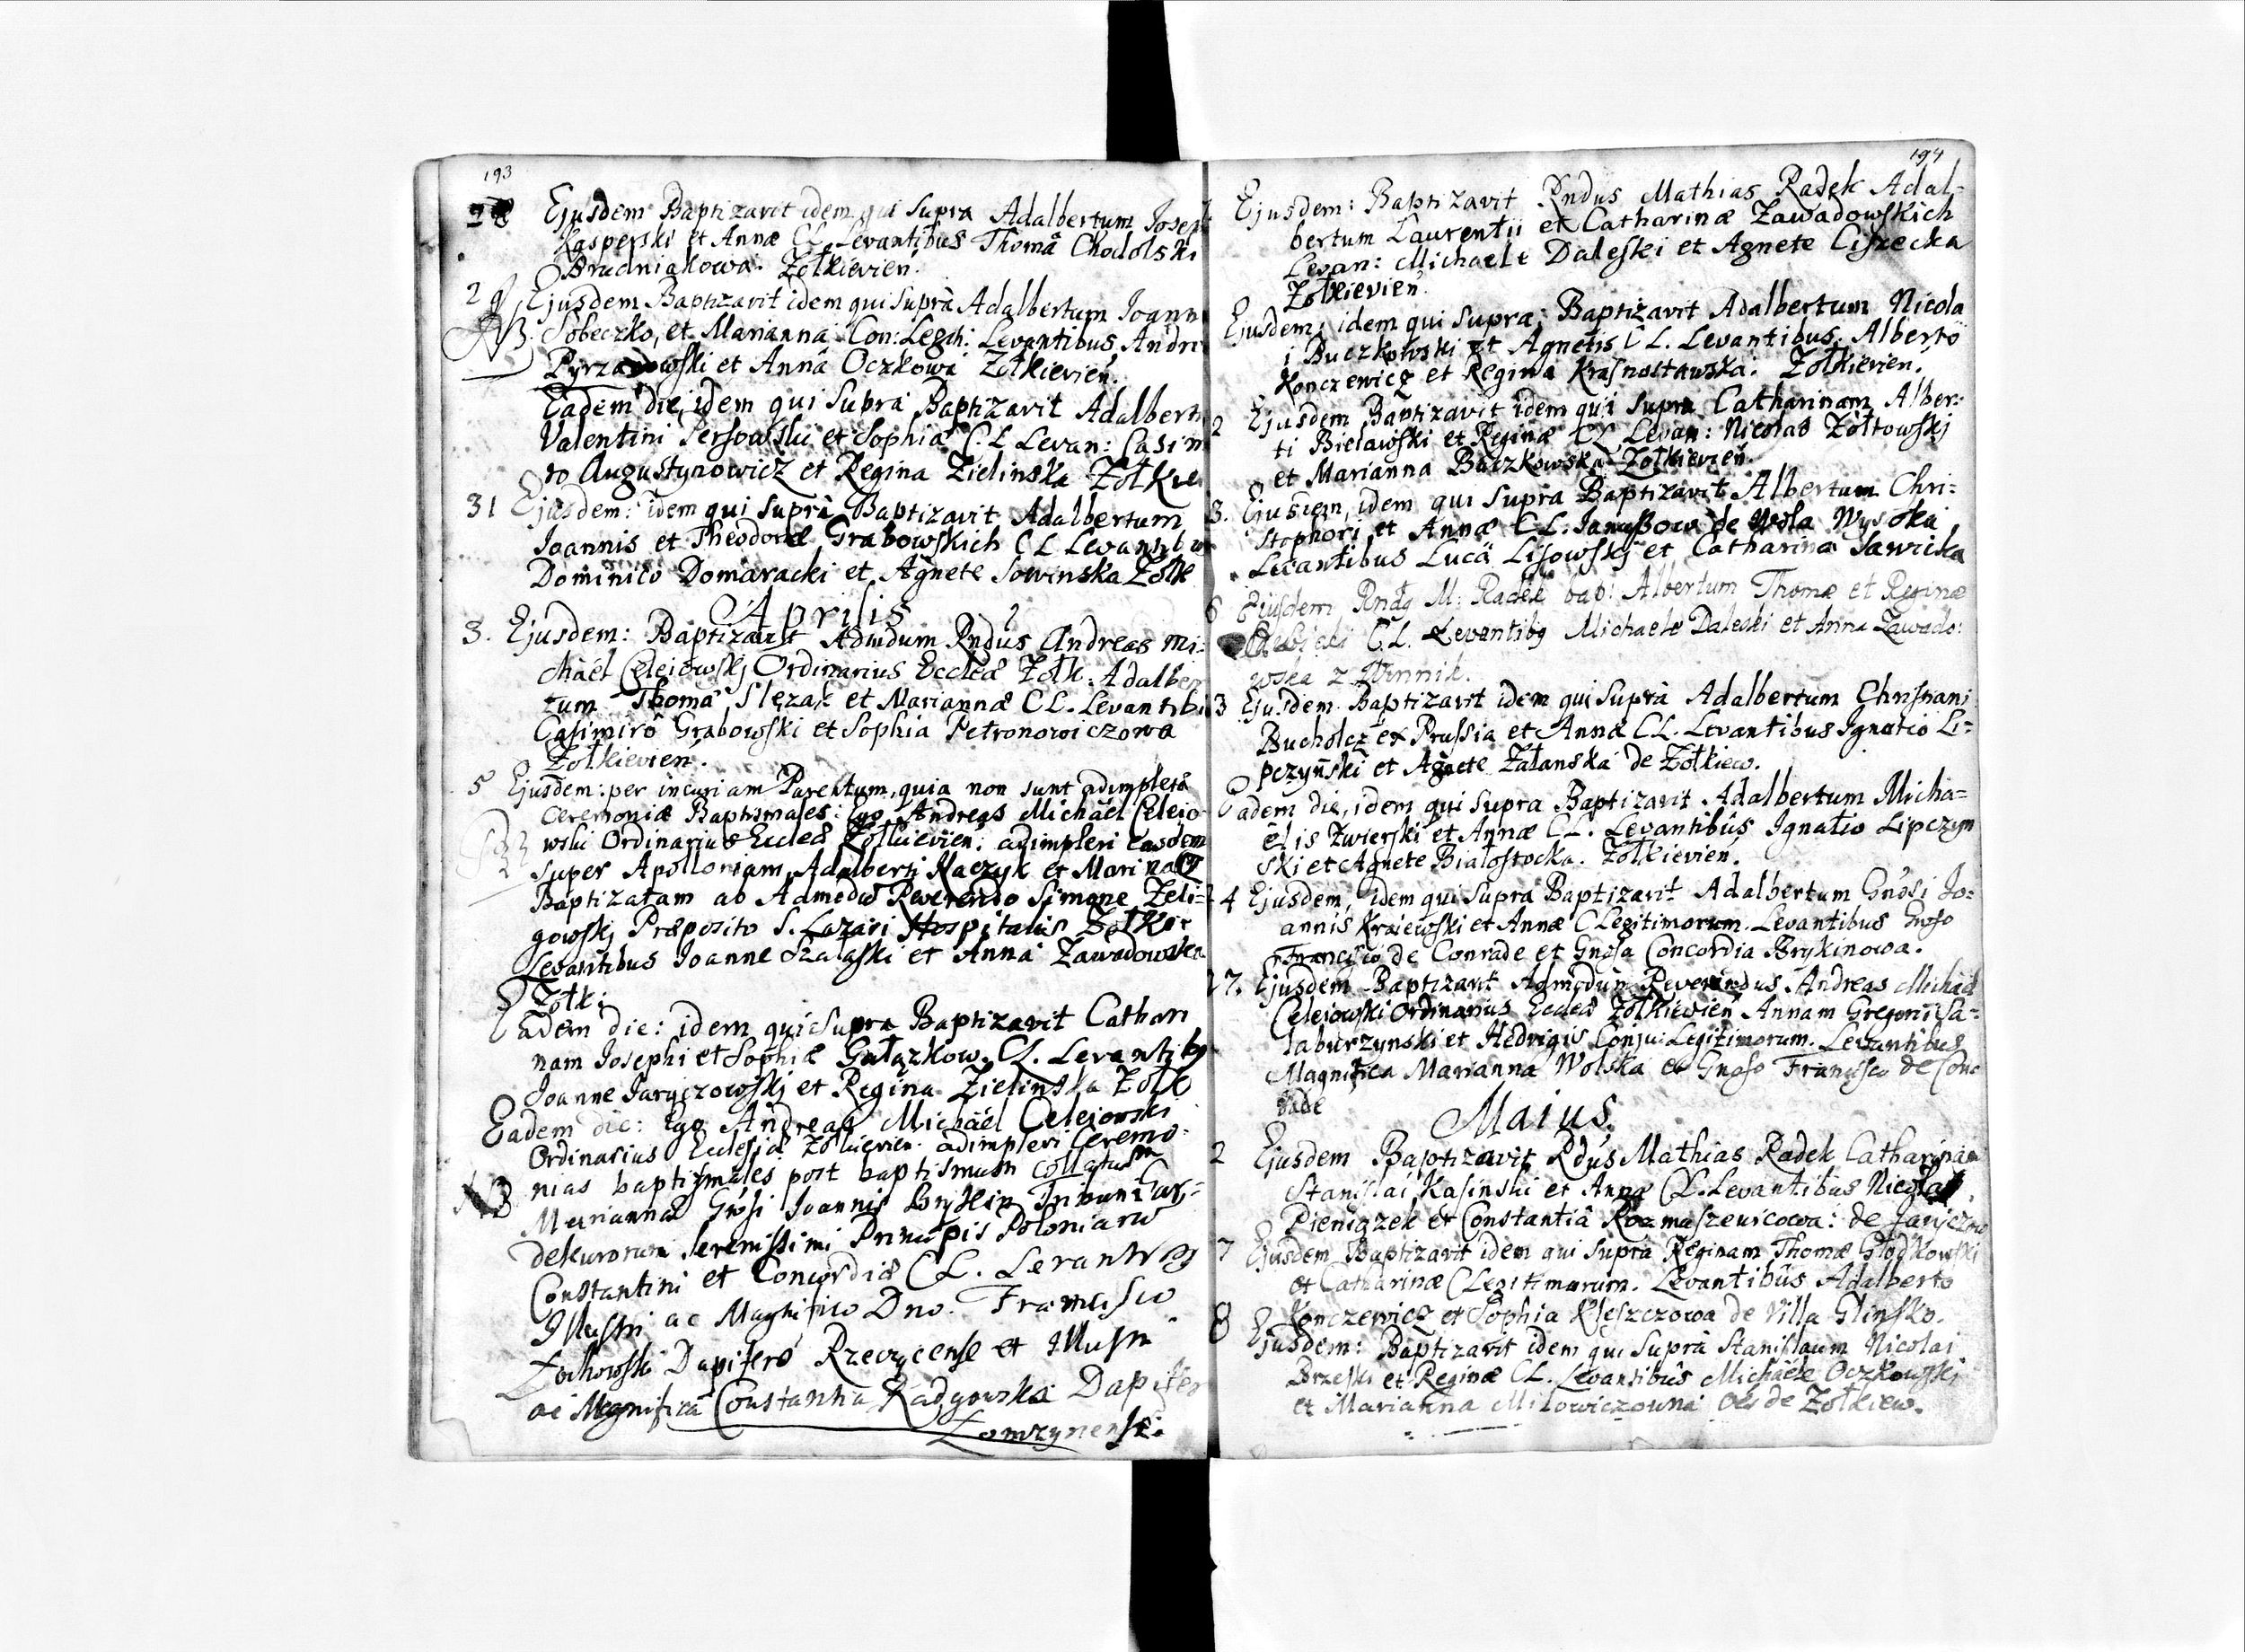 193
28 Ejusdem Baptizavit idem qui supra Adalbertum Josep
Kasperski et Annæ CL. Levantibus Thomâ Chodolski
Brudniakowa. Zołkievien.
29 Ejusdem Baptizavit idem qui suprà Adalbertum Joann
NB. Sobeczko, et Marianna Con: Legth: Levantibus Andre
Pyrzanowski et Annâ Oczkowa Zołkievien.
Eadem die, idem qui suprà Baptizavit Adalbert
Valentini Persowski et Sophia C.L Levan: Casim
ro Augustynowicz et Regina Zielinska Zołkie
31 Ejusdem: idem qui suprà Baptizavit Adalbertum
Joannis et Theodoræ Grabowskich CL Levantibus
Dominico Domaracki et Agnete Sowinska Zołk
Aprilis
3. Ejusdem: Baptizavit Admdum Rndus Andreas Mi:
chaël Celejowskj Ordinarius Eccleæ Zołk: Adalber
tum Thoma Slęzak et Mariannæ CL. Levantibu
Casimirô Grabowski et Sophia Petronowiczowa
Zołkievien.
5 Ejusdem: per incuriam Parentum, quia non sunt adimpletæ
Ceremoniæ Baptismales: Ego Andreas Michaël Celejo
wski Ordinarius Eccleæ Zołkievien: adimplevi easdem
super Apolloniam Adalberti Kaczyk et Marinæ
Baptizatam ab Admodu Reverendo Simone Zeli=
gowskj Præposito S. Lazari Hospitalis Zołkie
Levantibus Joanne Szalaski et Anna Zawadowska
Zołk:
Eadem die: idem qui supra Baptizavit Cathari
nam Josephi et Sophiæ Gałązkow. CL. Levantibg
Joanne Jaryczowskj et Regina Zielinska Zołk
Eadem die: Ego Andreas Michaël Celejowski
Ordinarius Ecclesiæ Zołkievien. adimplevi Ceremo=
NB nias baptismales post baptismum collatum
Mariannæ Gnosi Joannis Brykin Tribuni
Serenissimi Principis Poloniarũ
Constantini et Concordiæ CL. Levantibg
Illustri ac Magnifico Dno. Francisco
Dapifero Rzeczycense et Illustri
ac Magnificâ Constantia Radgowska Dapifer
Lomzynensi.
194
Ejusdem: Baptizavit Rndus Mathias Radek Adal=
bertum Laurentii et Catharinæ Zawadowskich
Levan: Michaele Daleski et Agnete Ciszecka
Zołkievien.
Ejusdem: idem qui supra: Baptizavit Adalbertum Nicola
i Buczkowski et Agnetis CL. Levantibus. Alberto
Konczewicz et Regina Krasnoltawska: Zołkievien.
2 Ejusdem Baptizavit idem qui supra Catharinam Alber:
ti Bielawski et Reginæ CL Levan: Nicolao Zołtowskj
et Marianna Buczkowska Zołkievien.
3. Ejusdem, idem qui supra Baptizavit Albertum Chri:
stophori et Annæ CL. de Wola Wysoka
Levantibus Lucâ Lisowskj et Catharina Sawicka
6 Ejusdem Rndg M: Radek bap: Albertum Thomæ et Reginæ
C.L. Levantibg Michaele Daleski et Anna Zawado:
wska z Winnik.
3 Ejusdem Baptizavit idem qui suprà Adalbertum Christiani
Bucholcz ex Prussia et Annæ CL. Levantibus Ignatio Li=
pczyński et Agnete Zalanska de Zołkiew.
Eadem die, idem qui supra Baptizavit Adalbertum Micha=
elis Zwierski et Annæ CL. Levantibus Ignatio Lipczyn
ski et Agnete Białostocka. Zołkievien.
4 Ejusdem, idem qui supra Baptizavit Adalbertum Gnosi Jo=
annis Krajewski et Annæ CLegitimorum. Levantibus Gnoso
Francisco de Conrade et Gnosa Concordia Brykinowa.
27. Ejusdem Baptizavit Admodum Reverendus Andreas Michaël
Celejowski Ordinarius Eccleæ Zołkievien Annam Gregorii Sa=
laburzynski et Hedvigis Conju: Legitimorum. Levantibus
Magnifica Marianna Wolska et Gnoso Francisco de Con
rade
Maius.
2 Ejusdem Baptizavit Rdus Mathias Radek Catharinam
Stanislai Kasinski et Annæ CL. Levantibus Nicolao
Pieniązek et Constantiâ Rozmaszewicowa: de Jaryczow
7 Ejusdem Baptizavit idem qui supra Reginam Thomæ Głodkowski
et Catharinæ CLegitimorum. Levantibus Adalberto
Konczewicz et Sophia Kleszczowa de Villa Glinsko.
8 Ejusdem: Baptizavit idem qui suprà Stanislaum Nicolai
Brzeski et Reginæ CL. Levantibus Michaële Oczkowskj
et Marianna Milowiczowna oes de Zołkiew.